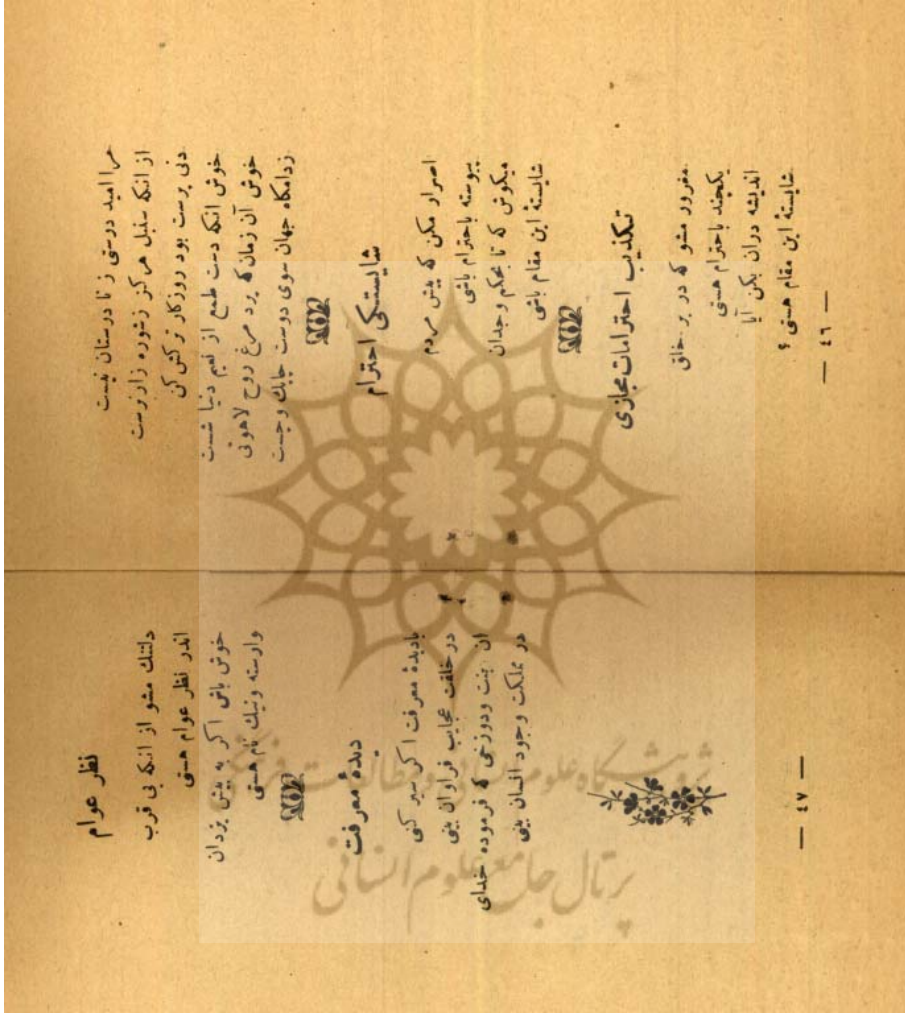 مرا امید درستی ز نا درستان نیست
از انکه سنبل هرکز زشوره زار نرست
دنی پرست بود روزکار ترکش کن
خوش انکه دست طمع از نعیم دنیا شست
خوش آن زمان که پرد مرغ روح لاهوتی
زدامکاه جهان سوی دوست چابك وچست
شایستکی احترام
اصرار مکن که پیش مردم
پیوسته باحترام باشی
میکوش که تا بحکم وجدان
شایستهٔ این مقام باشی
تکذیب احترامات مجازی
مغرور مشو که در بر خلق
یکچند باحترام هستی
اندیشه دران بکن آیا
شایستهٔ این مقام هستی ؟
— ٤٦ —
نظر عوام
دلتنك مشو از انکه بی قرب
اندر نظر عوام هستی
خوش باش اکر به پیش یزدان
وارسته ونیك نام هستی
دیدهٔ معرفت
بادیدهٔ معرفت اکر سیر کنی
در خلقت عجایب فراوان بینی
ان جنت ودوزخی که فرموده خدای
در مملکت وجود انسان بینی
— ٤٧ —
پژوهشگاه علوم انسانی و مطالعات فرهنگی
پرتال جامع علوم انسانی